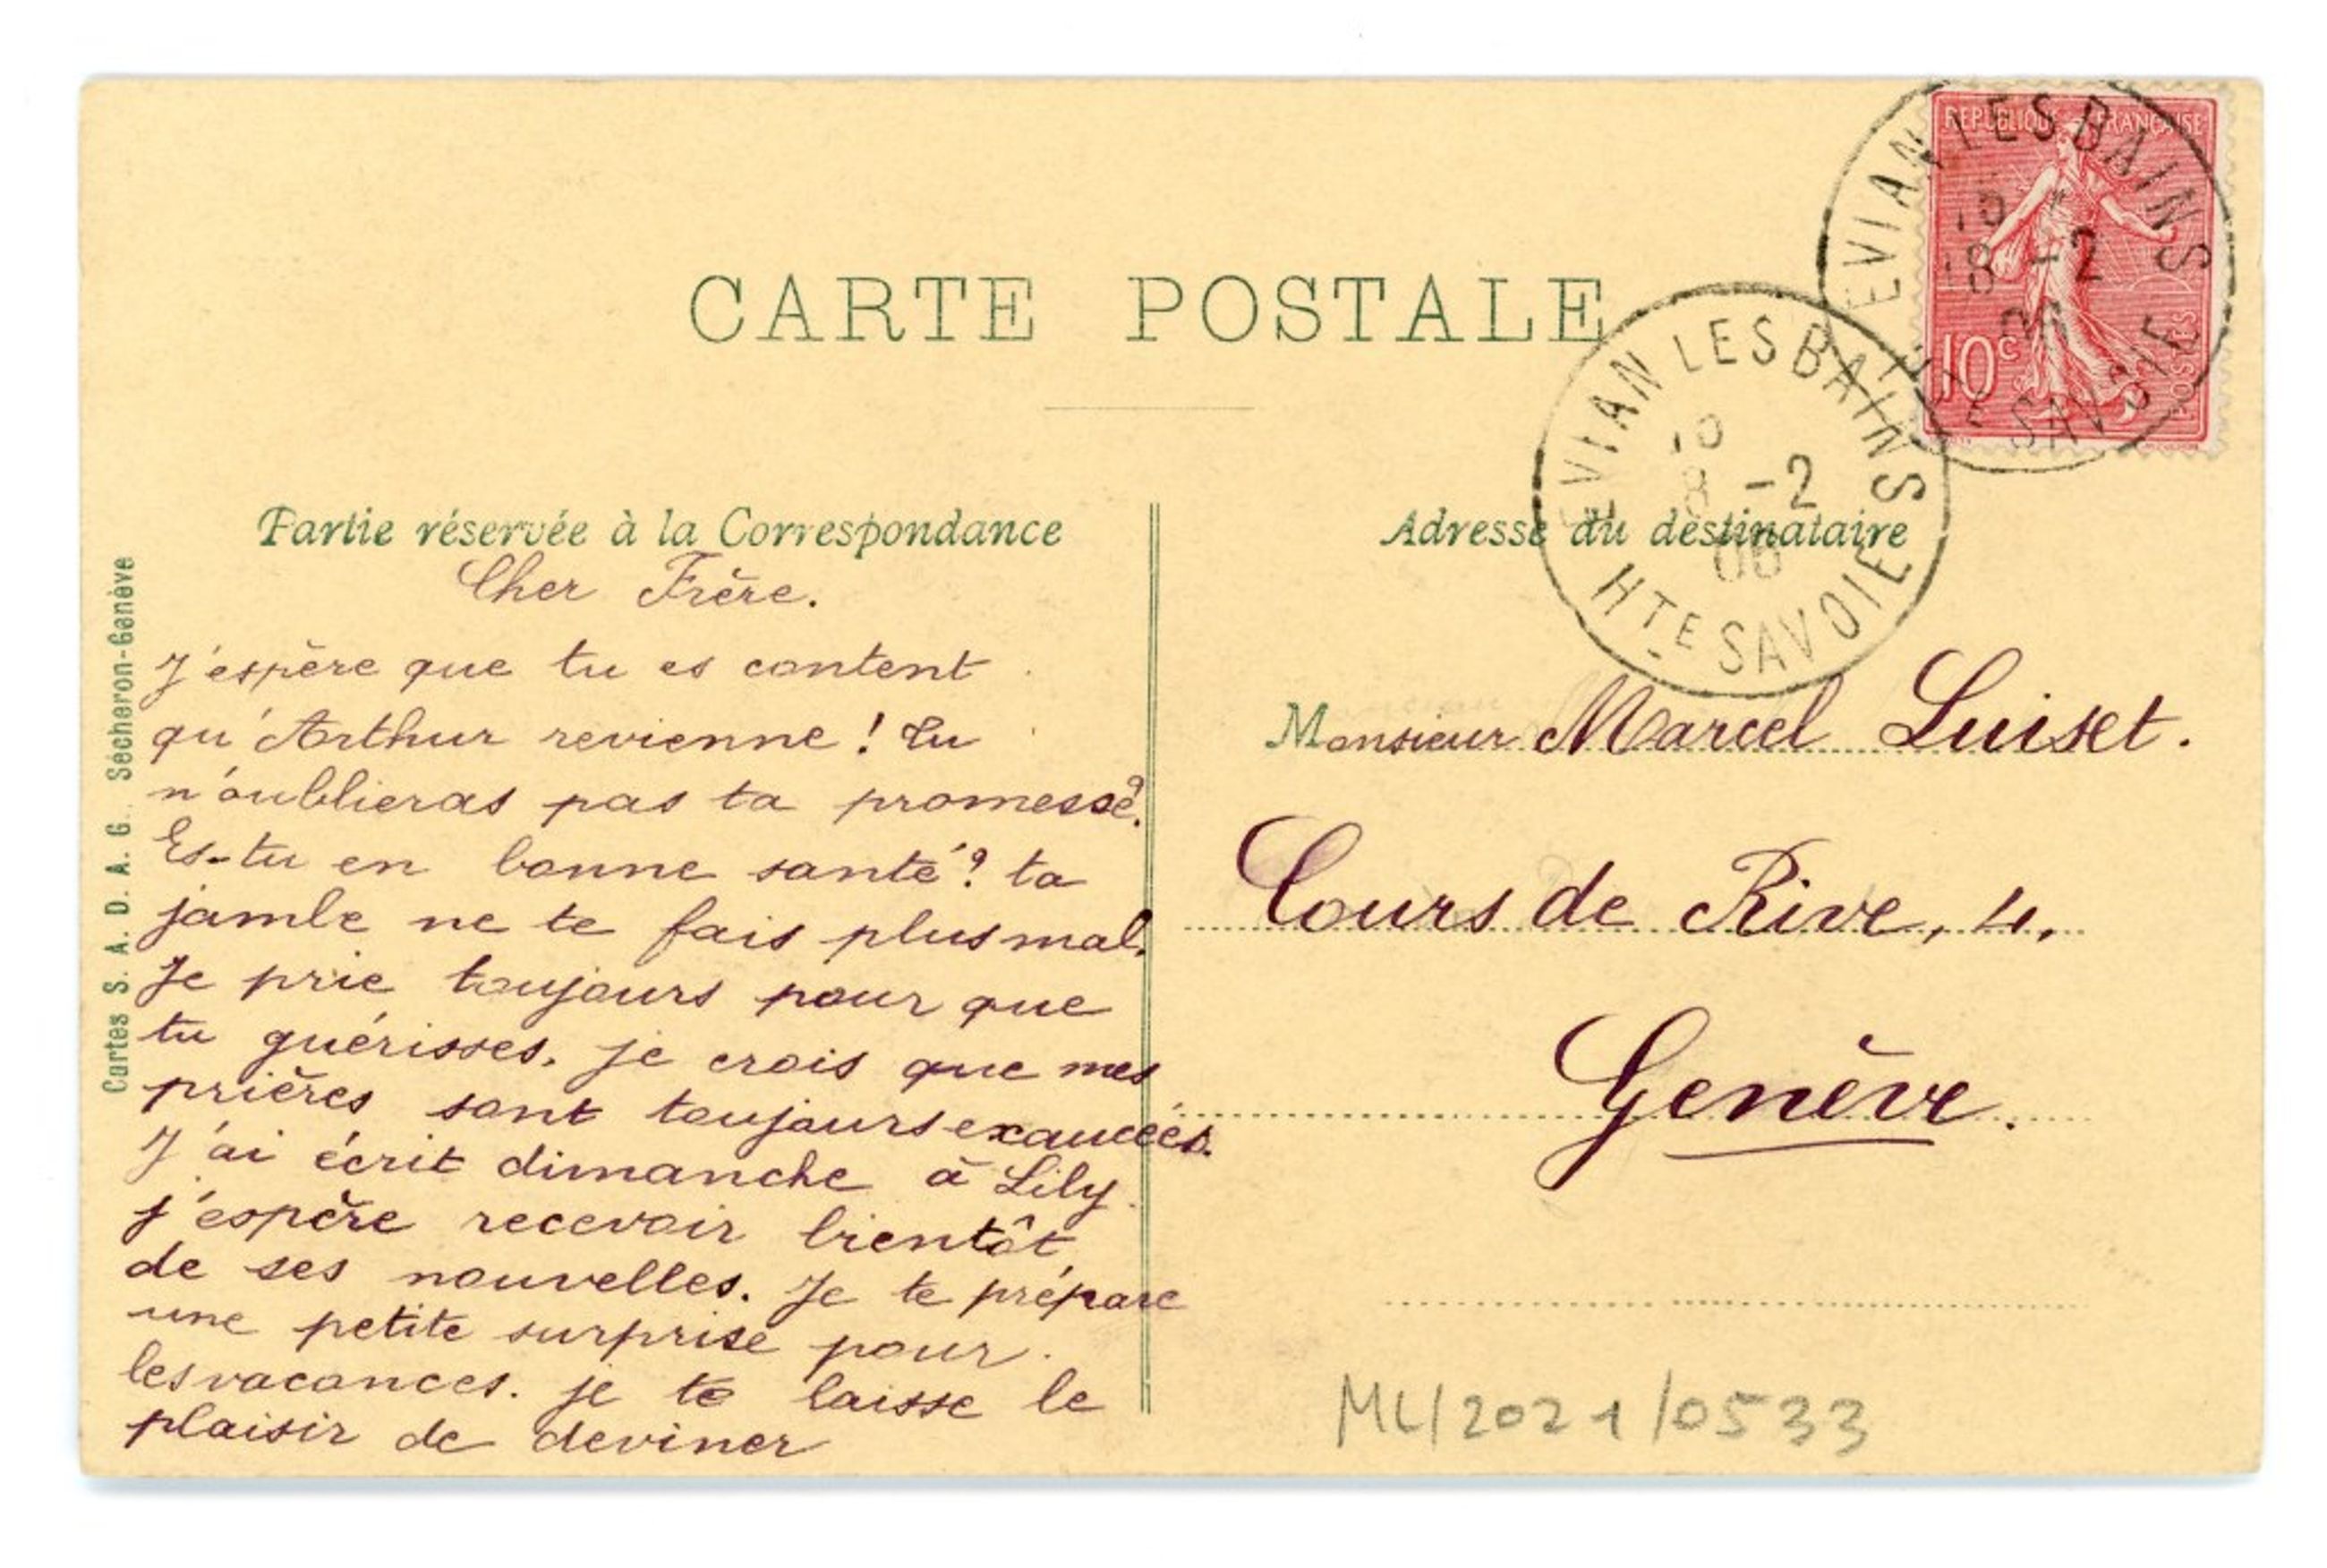 CARTE POSTALE
REPUBLIQUE FRANÇAISE
10c
POSTES
EVIAN LES BAINS
-2
HTE SAVOIE
EVIAN LES BAINS
10
8 -2
06
HTE SAVOIE
Partie réservée à la Correspondance
Cher Frère.
J'espère que tu es content
qu'Arthur revienne ! Tu
n'oublieras pas ta promesse?
Es-tu en bonne santé? ta
jambe ne te fais plus mal.
Je prie toujours pour que
tu guérisses. je crois que mes
prières sont toujours exaucées.
J'ai écrit dimanche à Lily
j'espère recevoir bientôt
de ses nouvelles. Je te prépare
une petite surprise pour
les vacances. je te laisse le
plaisir de deviner
Adresse du destinataire
Monsieur Marcel Luiset.
Cours de Rive, 4.
Genève.
ML/2021/0533
Cartes S. A. D. A. G. Sécheron-Genève